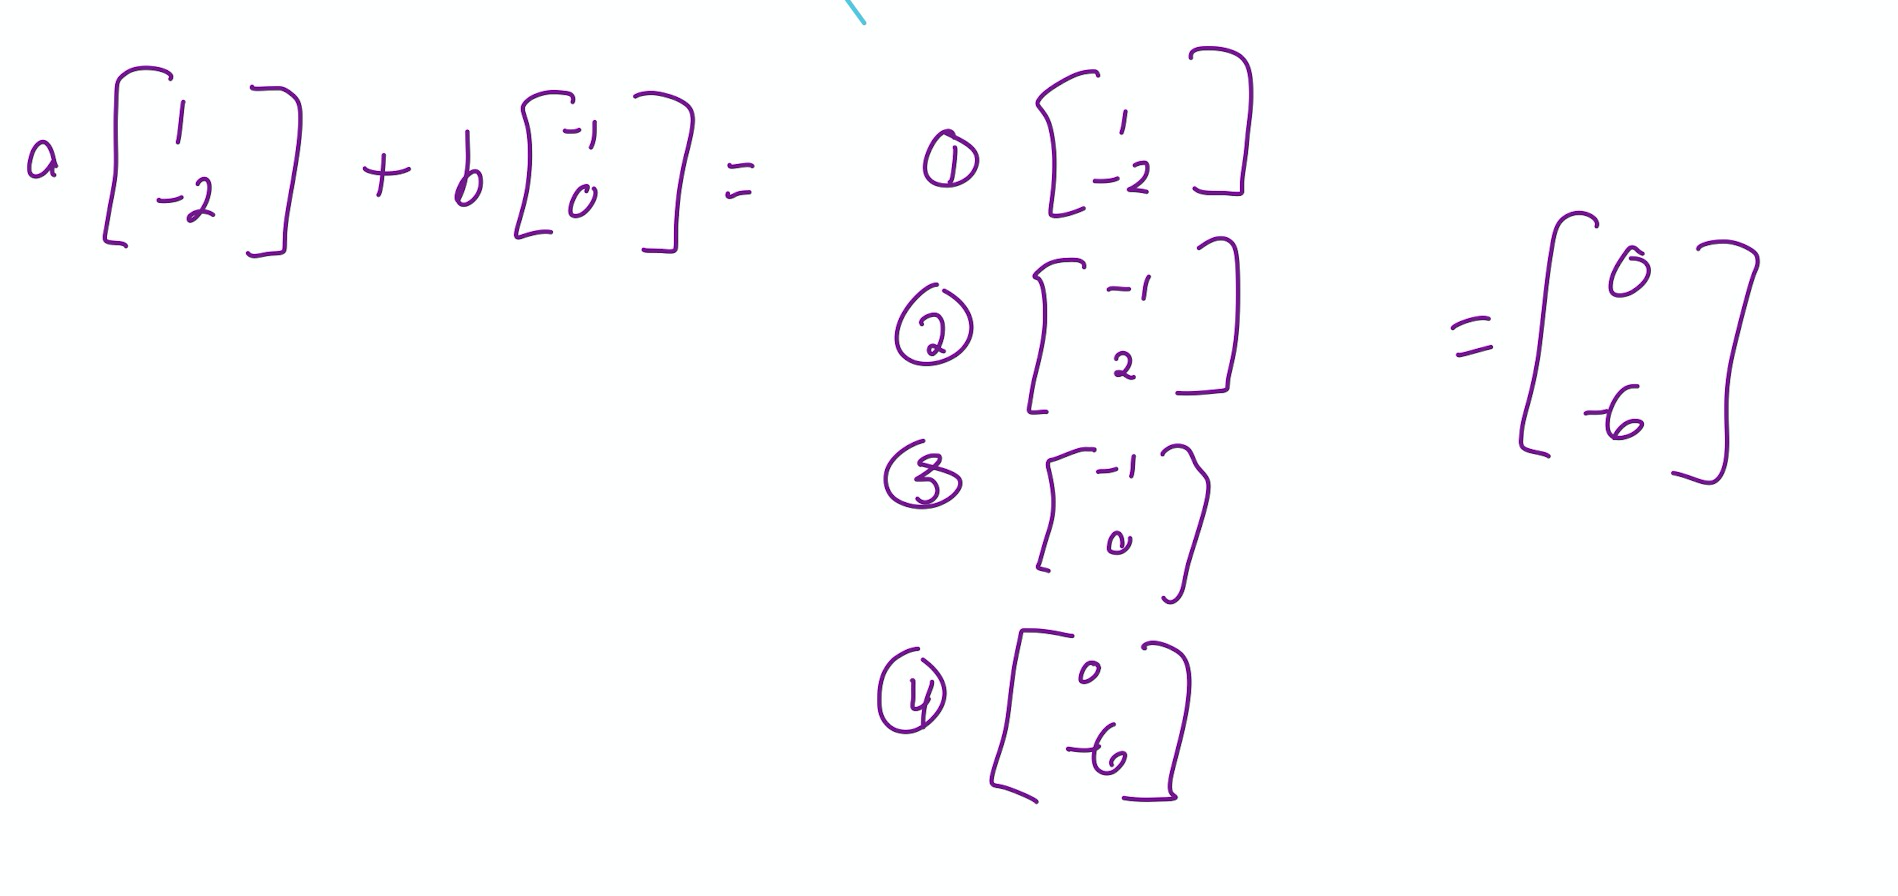 a [1 -2] + b [-1 0] =
① [1 -2]
② [-1 2]
③ [-1 0]
④ [0 -6]
= [0 -6]